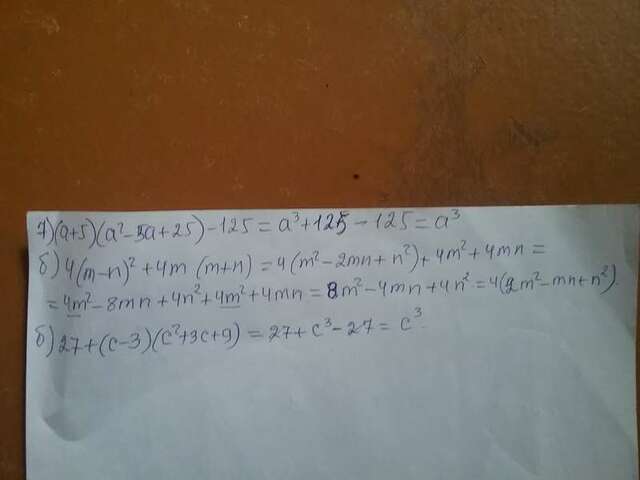 1)(a+5)(a²-5a+25)-125=a³+125-125=a³
б)4(m-n)²+4m(m+n)=4(m²-2mn+n²)+4m²+4mn=
=4m²-8mn+4n²+4m²+4mn=8m²-4mn+4n²=4(2m²-mn+n²).
б)27+(c-3)(c²+3c+9)=27+c³-27=c³.